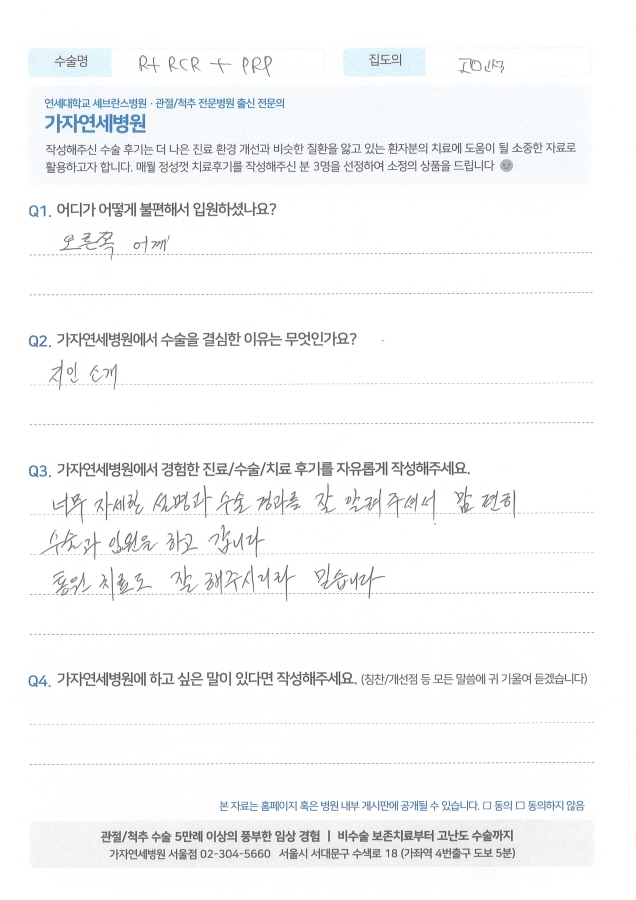 수술명 R+ RCR + PRP 집도의
연세대학교 세브란스병원 · 관절/척추 전문병원 출신 전문의
가자연세병원
작성해주신 수술 후기는 더 나은 진료 환경 개선과 비슷한 질환을 앓고 있는 환자분의 치료에 도움이 될 소중한 자료로
활용하고자 합니다. 매월 정성껏 치료후기를 작성해주신 분 3명을 선정하여 소정의 상품을 드립니다
Q1. 어디가 어떻게 불편해서 입원하셨나요?
오른쪽 어깨
Q2. 가자연세병원에서 수술을 결심한 이유는 무엇인가요?
지인 소개
Q3. 가자연세병원에서 경험한 진료/수술/치료 후기를 자유롭게 작성해주세요.
너무 자세한 설명과 수술 경과를 잘 알려주셔서 맘 편히
수술과 입원을 하고 갑니다
통원 치료도 잘 해주시리라 믿습니다
Q4. 가자연세병원에 하고 싶은 말이 있다면 작성해주세요. (칭찬/개선점 등 모든 말씀에 귀 기울여 듣겠습니다)
본 자료는 홈페이지 혹은 병원 내부 게시판에 공개될 수 있습니다. □ 동의 □ 동의하지 않음
관절/척추 수술 5만례 이상의 풍부한 임상 경험 | 비수술 보존치료부터 고난도 수술까지
가자연세병원 서울점 02-304-5660 서울시 서대문구 수색로 18 (가좌역 4번출구 도보 5분)